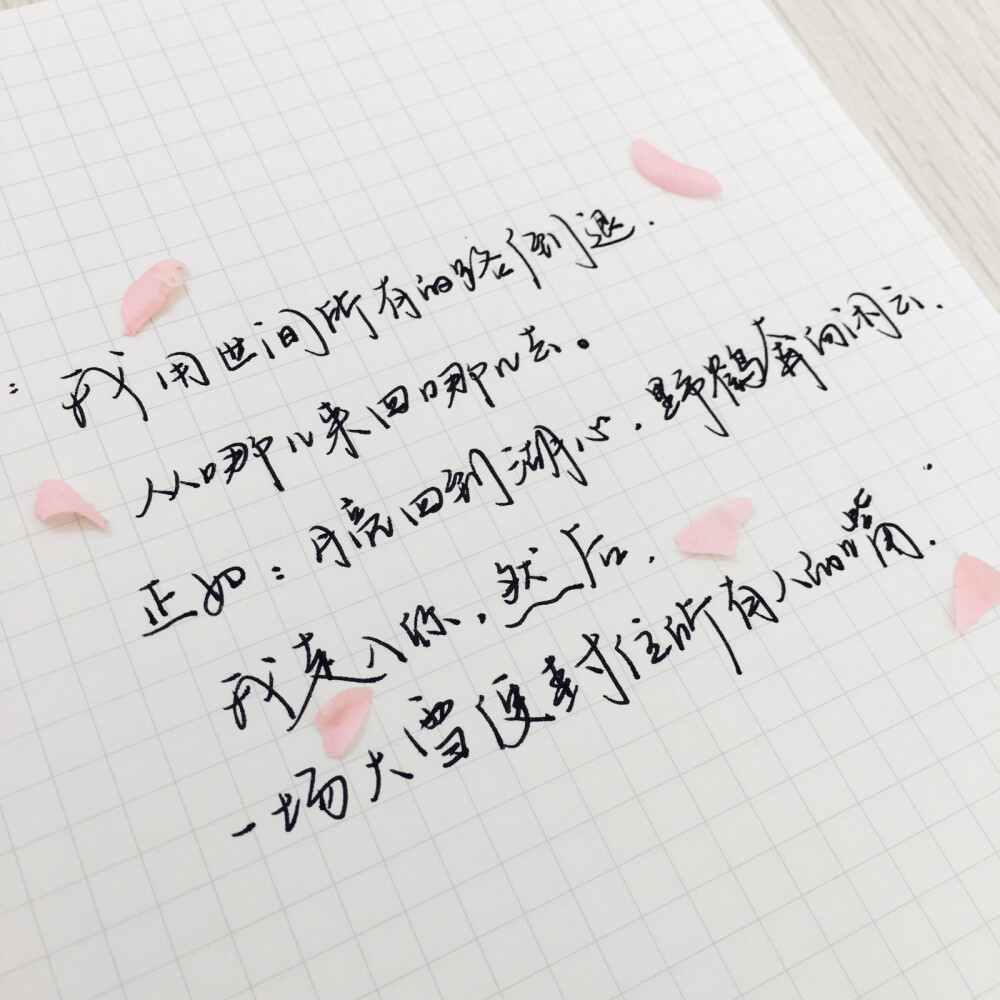 ：我用世间所有的路倒退．
从哪儿来回哪儿去。
正如：月亮回到湖心．野鹤奔向闲云．
我走入你．然后．
一场大雪便封住所有人的嘴角．